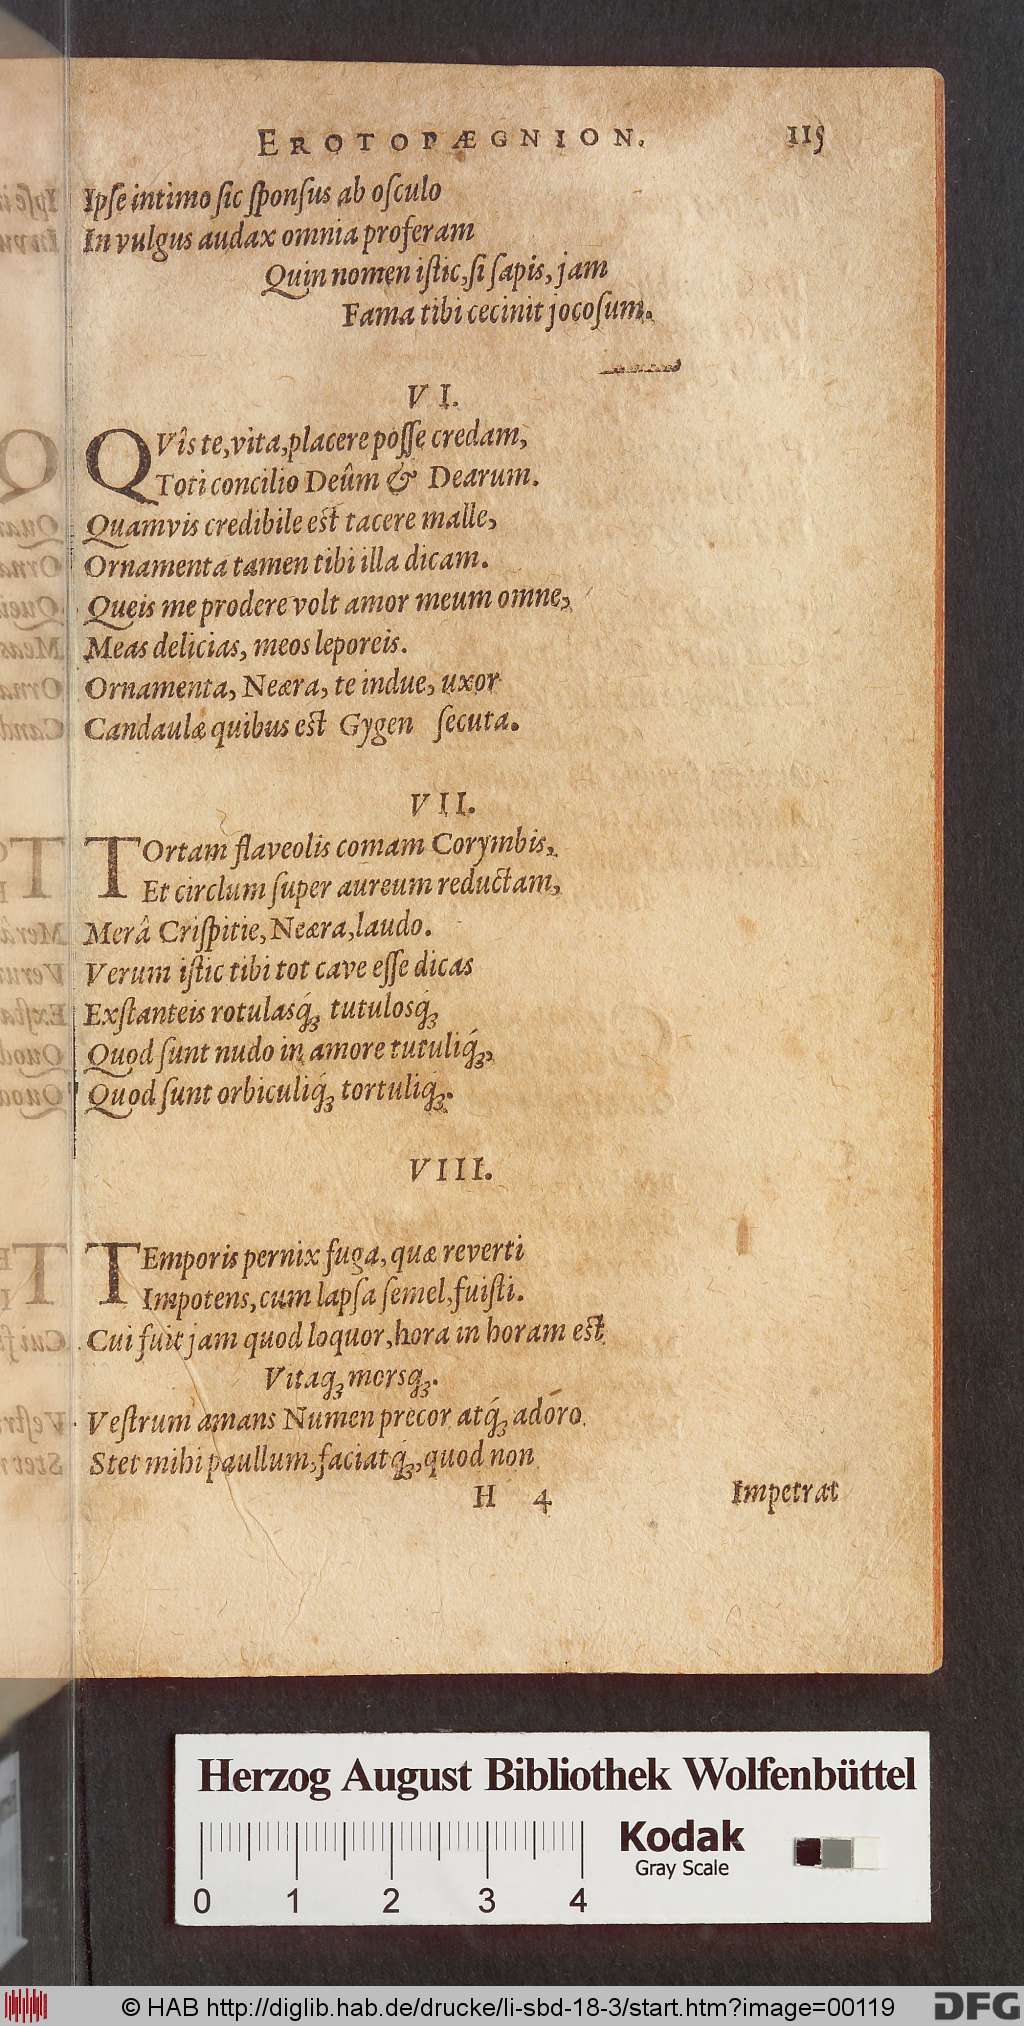 EROTOPÆGNION. 119
Ipſe intimo ſic ſponſus ab oſculo
In vulgus audax omnia proferam
Quin nomen iſtic, ſi ſapis, jam
Fama tibi cecinit jocoſum.
VI.
QVîs te, vita, placere poſſe credam,
Toti concilio Deûm & Dearum.
Quamvis credibile eſt tacere malle,
Ornamenta tamen tibi illa dicam.
Queis me prodere volt amor meum omne,
Meas delicias, meos leporeis.
Ornamenta, Neæra, te indue, uxor
Candaulæ quibus eſt Gygen ſecuta.
VII.
TOrtam flaveolis comam Corymbis,
Et circlum ſuper aureum reductam,
Merâ Criſpitie, Neæra, laudo.
Verum iſtic tibi tot cave eſſe dicas
Exſtanteis rotulasq́ꝫ tutulosq́ꝫ
Quod ſunt nudo in amore tutuliq́ꝫ,
Quod ſunt orbiculiq́ꝫ tortuliq́ꝫ.
VIII.
TEmporis pernix fuga, quæ reverti
Impotens, cum lapſa ſemel, fuiſti.
Cui fuit jam quod loquor, hora in horam eſt
Vitaqꝫ morsqꝫ.
Veſtrum amans Numen precor atq́ꝫ adóro
Stet mihi paullum, faciatq́ꝫ, quod non
H 4 Impetrat
Herzog August Bibliothek Wolfenbüttel
Kodak
Gray Scale
0 1 2 3 4
© HAB http://diglib.hab.de/drucke/li-sbd-18-3/start.htm?image=00119
DFG